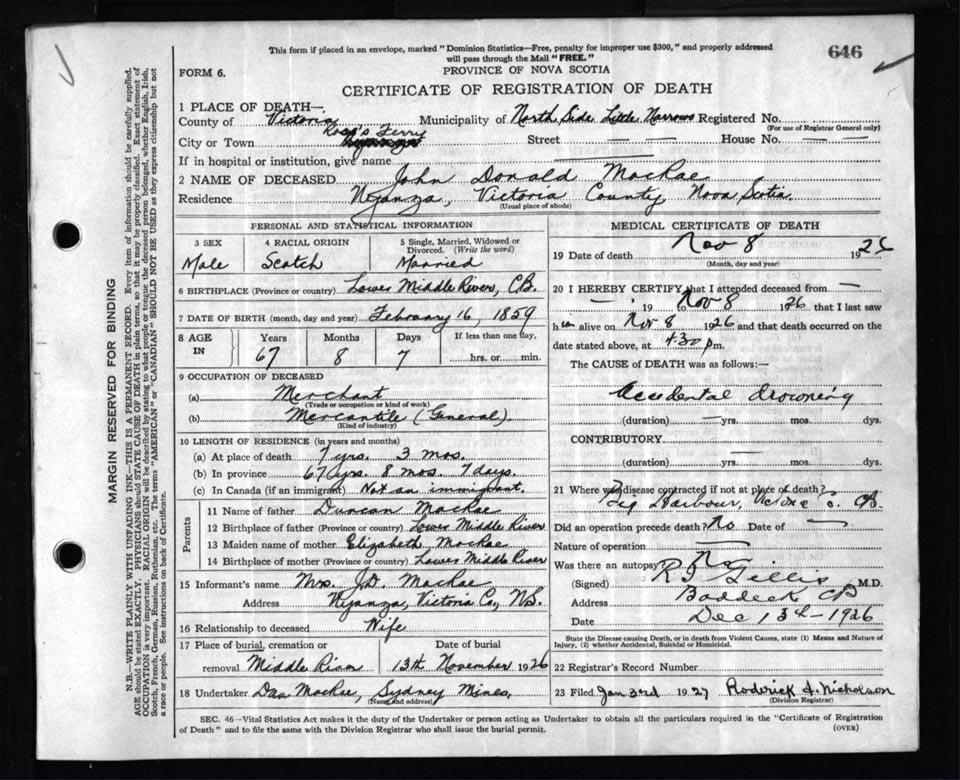 646
This form if placed in an envelope, marked "Dominion Statistics—Free, penalty for improper use $300," and properly addressed
will pass through the Mail "FREE."
FORM 6.
PROVINCE OF NOVA SCOTIA
CERTIFICATE OF REGISTRATION OF DEATH
1 PLACE OF DEATH—
County of Victoria Municipality of North Side Little Narrows Registered No.
(For use of Registrar General only)
Ross's Ferry
City or Town Nyanza Street House No. —
If in hospital or institution, give name —
2 NAME OF DECEASED John Donald MacRae
Residence Nyanza, Victoria County, Nova Scotia.
(Usual place of abode)
PERSONAL AND STATISTICAL INFORMATION
3 SEX 4 RACIAL ORIGIN 5 Single, Married, Widowed or
Divorced. (Write the word)
Male Scotch Married
6 BIRTHPLACE (Province or country) Lower Middle River, C.B.
7 DATE OF BIRTH (month, day and year) February 16, 1859
8 AGE IN Years Months Days If less than one day,
67 8 7 hrs. or min.
9 OCCUPATION OF DECEASED
(a) Merchant
(Trade or occupation or kind of work)
(b) Mercantile (General).
(Kind of industry)
10 LENGTH OF RESIDENCE (in years and months)
(a) At place of death 7 yrs. 3 mos.
(b) In province 67 yrs. 8 mos. 7 days.
(c) In Canada (if an immigrant) Not an immigrant.
Parents
11 Name of father Duncan MacRae
12 Birthplace of father (Province or country) Lower Middle River
13 Maiden name of mother Elizabeth MacRae
14 Birthplace of mother (Province or country) Lower Middle River
15 Informant's name Mrs. J.D. MacRae
Address Nyanza, Victoria Co., N.S.
16 Relationship to deceased Wife
17 Place of burial, cremation or Date of burial
removal Middle River 13th November 1926
18 Undertaker Dan MacRae, Sydney Mines,
(Name and address)
MEDICAL CERTIFICATE OF DEATH
19 Date of death Nov 8 1926
(Month, day and year)
20 I HEREBY CERTIFY that I attended deceased from —
— , 19 to Nov 8 1926 that I last saw
him alive on Nov 8 1926 and that death occurred on the
date stated above, at 4.30 pm.
The CAUSE of DEATH was as follows:—
Accidental drowning
(duration) — yrs. mos. dys.
CONTRIBUTORY
(duration) — yrs. mos. dys.
21 Where was disease contracted if not at place of death?
Harbour, Victoria C. C.B.
Did an operation precede death? No Date of —
Nature of operation —
Was there an autopsy? No
(Signed) Gillis M.D.
Address Baddeck CB
Date Dec 13th 1926
State the Disease causing Death, or in death from Violent Causes, state (1) Means and Nature of
Injury, (2) whether Accidental, Suicidal or Homicidal.
22 Registrar's Record Number
23 Filed Jan 3rd 1927 Roderick A. Nicholson
(Division Registrar)
SEC. 46—Vital Statistics Act makes it the duty of the Undertaker or person acting as Undertaker to obtain all the particulars required in the "Certificate of Registration
of Death" and to file the same with the Division Registrar who shall issue the burial permit.
(OVER)
MARGIN RESERVED FOR BINDING
N.B.—WRITE PLAINLY WITH UNFADING INK—THIS IS A PERMANENT RECORD. Every item of information should be carefully supplied.
AGE should be stated EXACTLY. PHYSICIANS should STATE CAUSE OF DEATH in plain terms, so that it may be properly classified. Exact statement of
OCCUPATION is very important. RACIAL ORIGIN will be described by stating to what people or tongue the deceased person belonged, whether English, Irish,
Scotch, French, German, Russian, Ruthenian, etc. The terms "AMERICAN" or "CANADIAN" SHOULD NOT BE USED as they express citizenship but not
a race or people. See instructions on back of Certificate.